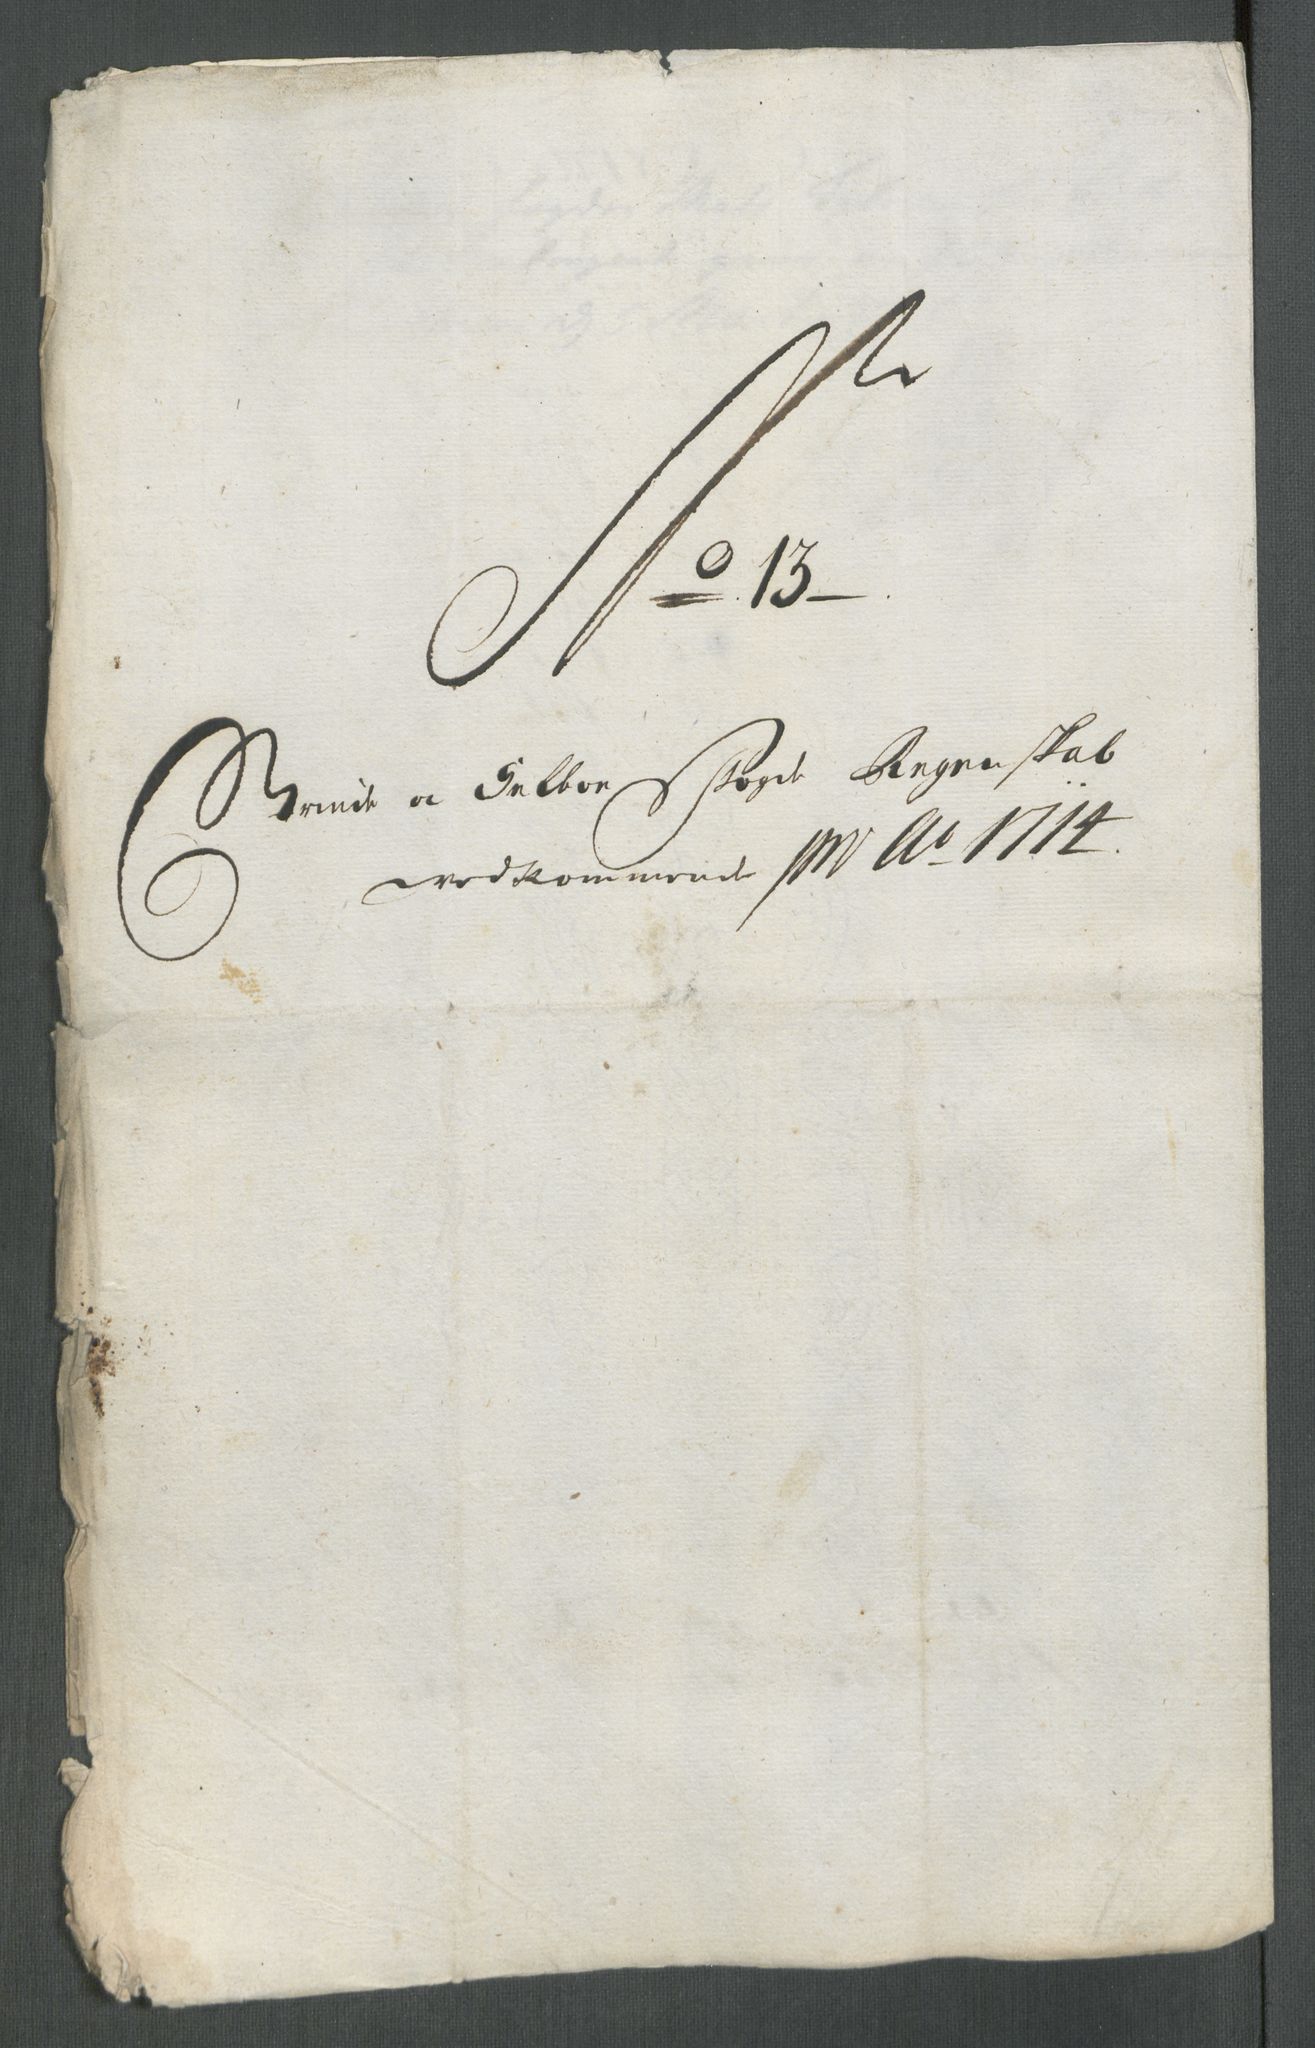 No 13
Strinde oc Selboe Fogde Regenskab
vedkommende pro Ao 1714.